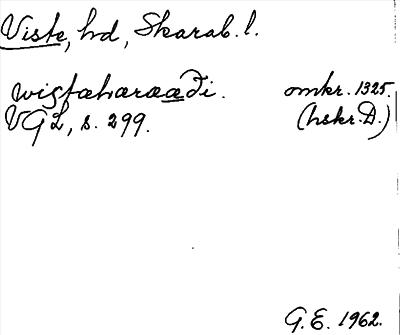 Viste, hd, Skarab. l.
wistæhæraæði. omkr. 1325.
VGL, s. 299. (hskr. D.)
G. E. 1962.